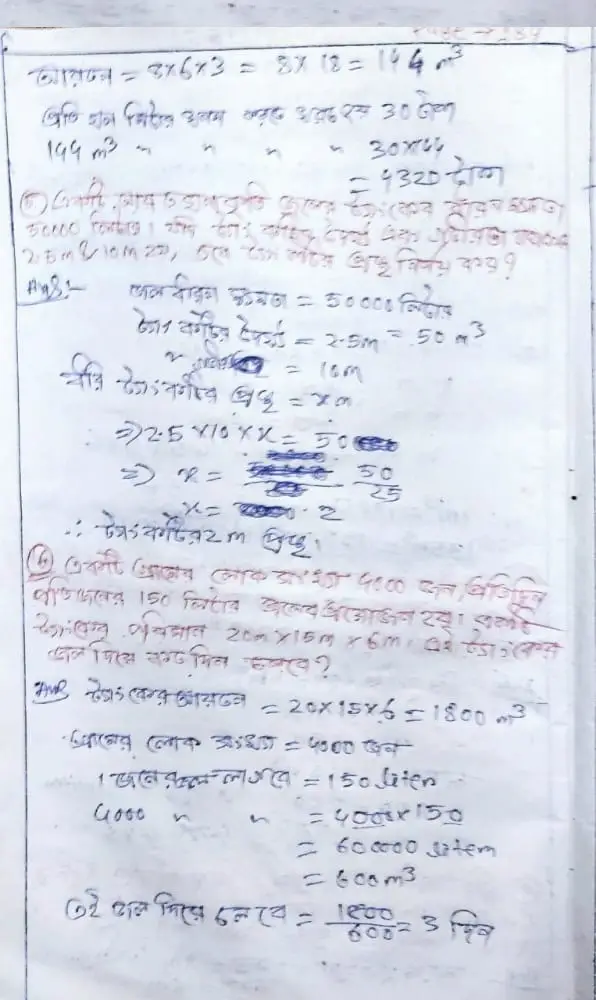 Page → 184
আয়তন = 8×6×3 = 8×18 = 144 m³
প্রতি ঘন মিটার খনন করতে খরচ হয় 30 টাকা
144 m³ " " " " 30×144
= 4320 টাকা
৫) একটী আয়তঘনাকৃতি জলের টেংকের ধারণ ক্ষমতা
50000 লিটার। যদি টেংকটির দৈর্ঘ্য এবং গভীরতা যথাক্রমে
2.5m ও 10m হয়, তবে টেংকটির প্রস্থ নির্ণয় কর?
Ans:- জল ধারণ ক্ষমতা = 50000 লিটার
টেংকটির দৈর্ঘ্য = 2.5m = 50 m³
" = 10m
ধরি টেংকটির প্রস্থ = x m
⇒ 2.5×10×x = 50
⇒ x = 50/25
x = 2
∴ টেংকটির 2m প্রস্থ।
৬) একটী গ্রামের লোক সংখ্যা 4000 জন, প্রতিদিন
প্রতিজনের 150 লিটার জলের প্রয়োজন হয়। একটী
টেংকের পরিমান 20m×15m×6m। এই টেংকের
জল দিয়ে কত দিন চলবে?
Ans টেংকের আয়তন = 20×15×6 = 1800 m³
গ্রামের লোক সংখ্যা = 4000 জন
1 জনের জল লাগবে = 150 liter
4000 " " = 4000×150
= 600000 liter
= 600 m³
এই জল দিয়ে চলবে = 1800/600 = 3 দিন